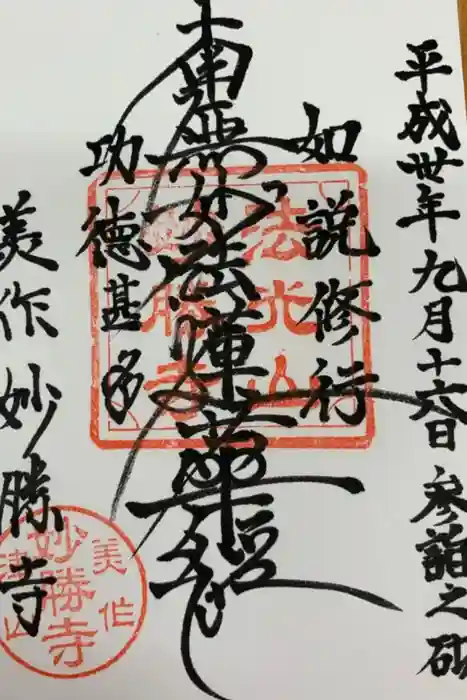 平成卅年九月十六日 参詣之砌
如説修行
南無妙法蓮華経
功徳甚多
美作 妙勝寺
法光山
妙勝寺
美作
妙勝寺
津山